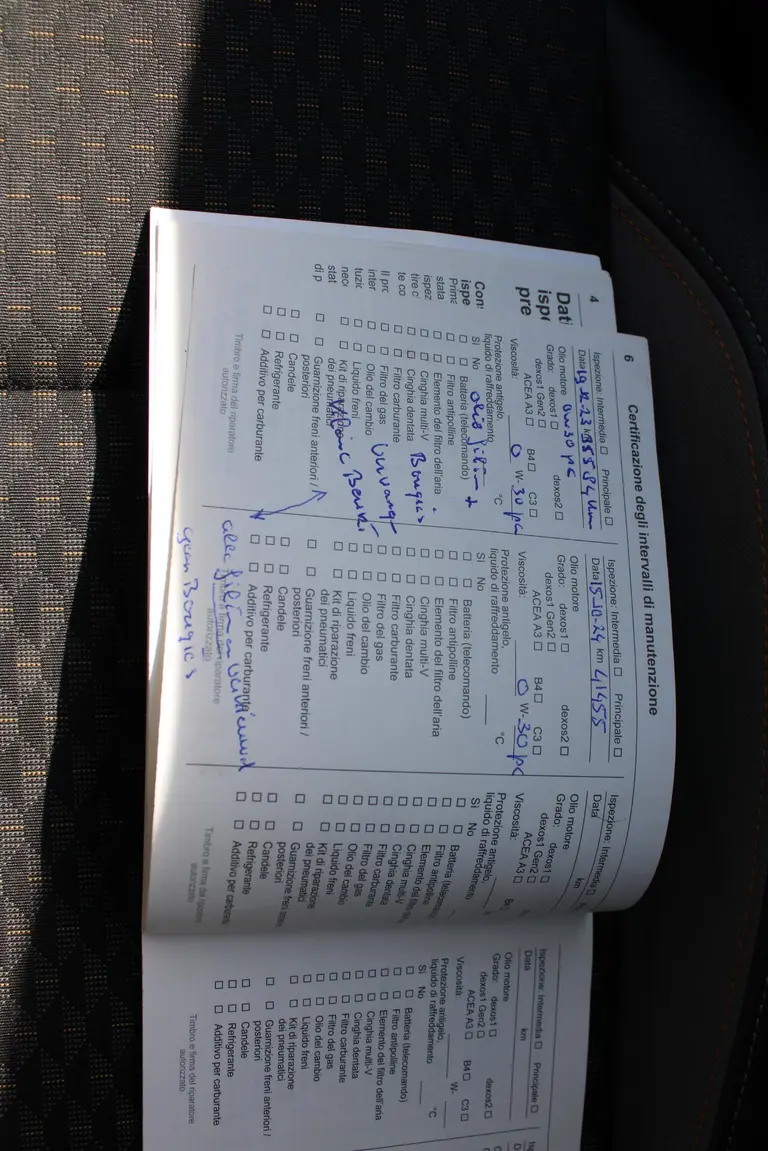 4
Dati
ispe
pre
Con:
ispe
Prima
stata
ispez
tire c
te co
Il pro
inter
tuzio
nece
stat
di p
6
Certificazione degli intervalli di manutenzione
Ispezione: Intermedia ☐ Principale ☐
Data km
Olio motore 0W30 pc
Grado: dexos1 ☐ dexos2 ☐
dexos1 Gen2 ☐
ACEA A3 ☐ B4 ☐ C3 ☐
Viscosità: 0 W-30 pc
Protezione antigelo,
liquido di raffreddamento °C
Sì No
☐ ☐ Batteria (telecomando)
☐ ☐ Filtro antipolline
☐ ☐ Elemento del filtro dell'aria
☐ ☐ Cinghia multi-V
☐ ☐ Cinghia dentata
☐ ☐ Filtro carburante
☐ ☐ Filtro del gas
☐ ☐ Olio del cambio
☐ ☐ Liquido freni
☐ ☐ Kit di riparazione
dei pneumatici
☐ ☐ Guarnizione freni anteriori /
posteriori
☐ ☐ Candele
☐ ☐ Refrigerante
☐ ☐ Additivo per carburante
Timbro e firma del riparatore
autorizzato
Ispezione: Intermedia ☐ Principale ☐
Data 15-10-24 km 41455
Olio motore
Grado: dexos1 ☐ dexos2 ☐
dexos1 Gen2 ☐
ACEA A3 ☐ B4 ☐ C3 ☐
Viscosità: 0 W-30 pc
Protezione antigelo,
liquido di raffreddamento °C
Sì No
☐ ☐ Batteria (telecomando)
☐ ☐ Filtro antipolline
☐ ☐ Elemento del filtro dell'aria
☐ ☐ Cinghia multi-V
☐ ☐ Cinghia dentata
☐ ☐ Filtro carburante
☐ ☐ Filtro del gas
☐ ☐ Olio del cambio
☐ ☐ Liquido freni
☐ ☐ Kit di riparazione
dei pneumatici
☐ ☐ Guarnizione freni anteriori /
posteriori
☐ ☐ Candele
☐ ☐ Refrigerante
☐ ☐ Additivo per carburante
riparatore
autorizzato
Ispezione: Intermedia ☐
Data km
Olio motore
Grado: dexos1 ☐
dexos1 Gen2 ☐
ACEA A3 ☐
Viscosità:
Protezione antigelo,
liquido di raffreddamento
Sì No
☐ ☐ Batteria
☐ ☐ Filtro antipolline
☐ ☐ Elemento del
☐ ☐ Cinghia multi-V
☐ ☐ Cinghia dentata
☐ ☐ Filtro carburante
☐ ☐ Filtro del gas
☐ ☐ Olio del cambio
☐ ☐ Liquido freni
☐ ☐ Kit di riparazione
dei pneumatici
☐ ☐ Guarnizione freni
posteriori
☐ ☐ Candele
☐ ☐ Refrigerante
☐ ☐ Additivo per carburante
Timbro e firma del
autorizzato
Ispezione: Intermedia ☐ Principale ☐
Data km
Olio motore
Grado: dexos1 ☐ dexos2 ☐
dexos1 Gen2 ☐
ACEA A3 ☐ B4 ☐ C3 ☐
Viscosità: W-
Protezione antigelo,
liquido di raffreddamento °C
Sì No
☐ ☐ Batteria (telecomando)
☐ ☐ Filtro antipolline
☐ ☐ Elemento del filtro dell'aria
☐ ☐ Cinghia multi-V
☐ ☐ Cinghia dentata
☐ ☐ Filtro carburante
☐ ☐ Filtro del gas
☐ ☐ Olio del cambio
☐ ☐ Liquido freni
☐ ☐ Kit di riparazione
dei pneumatici
☐ ☐ Guarnizione freni anteriori /
posteriori
☐ ☐ Candele
☐ ☐ Refrigerante
☐ ☐ Additivo per carburante
Timbro e firma del riparatore
autorizzato